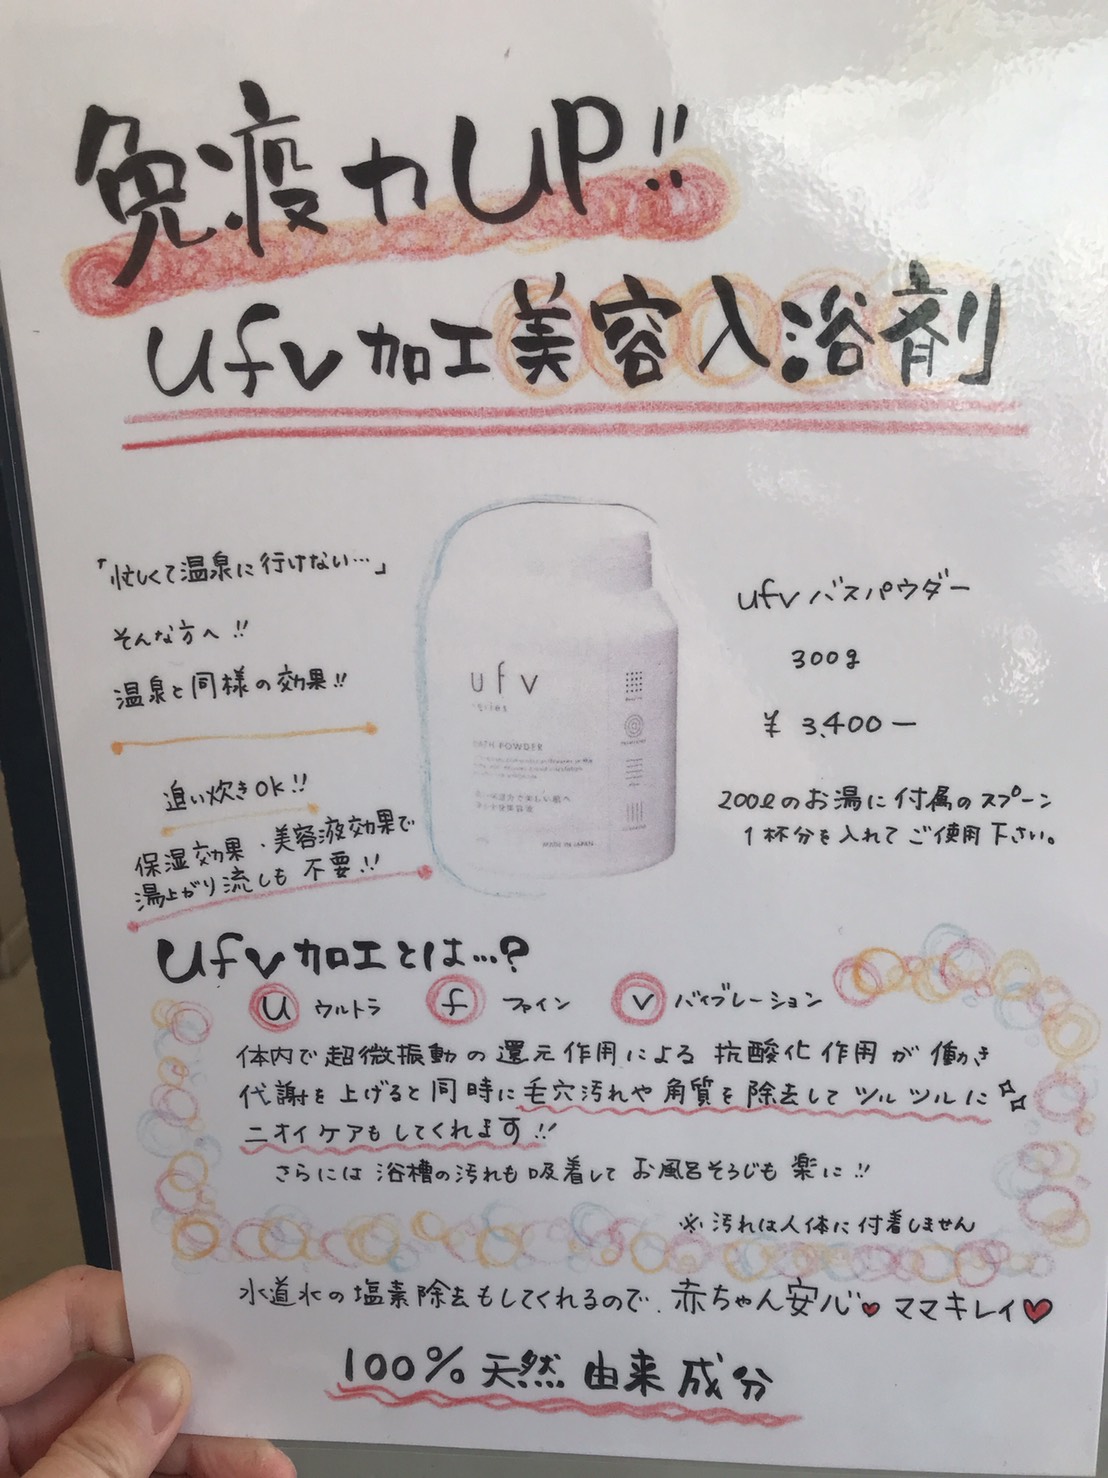 免疫力UP!!
ufv加工美容入浴剤
「忙しくて温泉に行けない…」
そんな方へ!!
温泉と同様の効果!!
追い炊きOK!!
保湿効果・美容液効果で
湯上がり流しも不要!!
ufv
BATH POWDER
MADE IN JAPAN
ufvバスパウダー
300g
¥3,400ー
200ℓのお湯に付属のスプーン
1杯分を入れてご使用下さい。
ufv加工とは…?
u ウルトラ f ファイン v バイブレーション
体内で超微振動の還元作用による抗酸化作用が働き
代謝を上げると同時に毛穴汚れや角質を除去してツルツルに
ニオイケアもしてくれます!!
さらには浴槽の汚れも吸着してお風呂そうじも楽に!!
※汚れは人体に付着しません
水道水の塩素除去もしてくれるので、赤ちゃん安心♥ママキレイ♥
100%天然由来成分